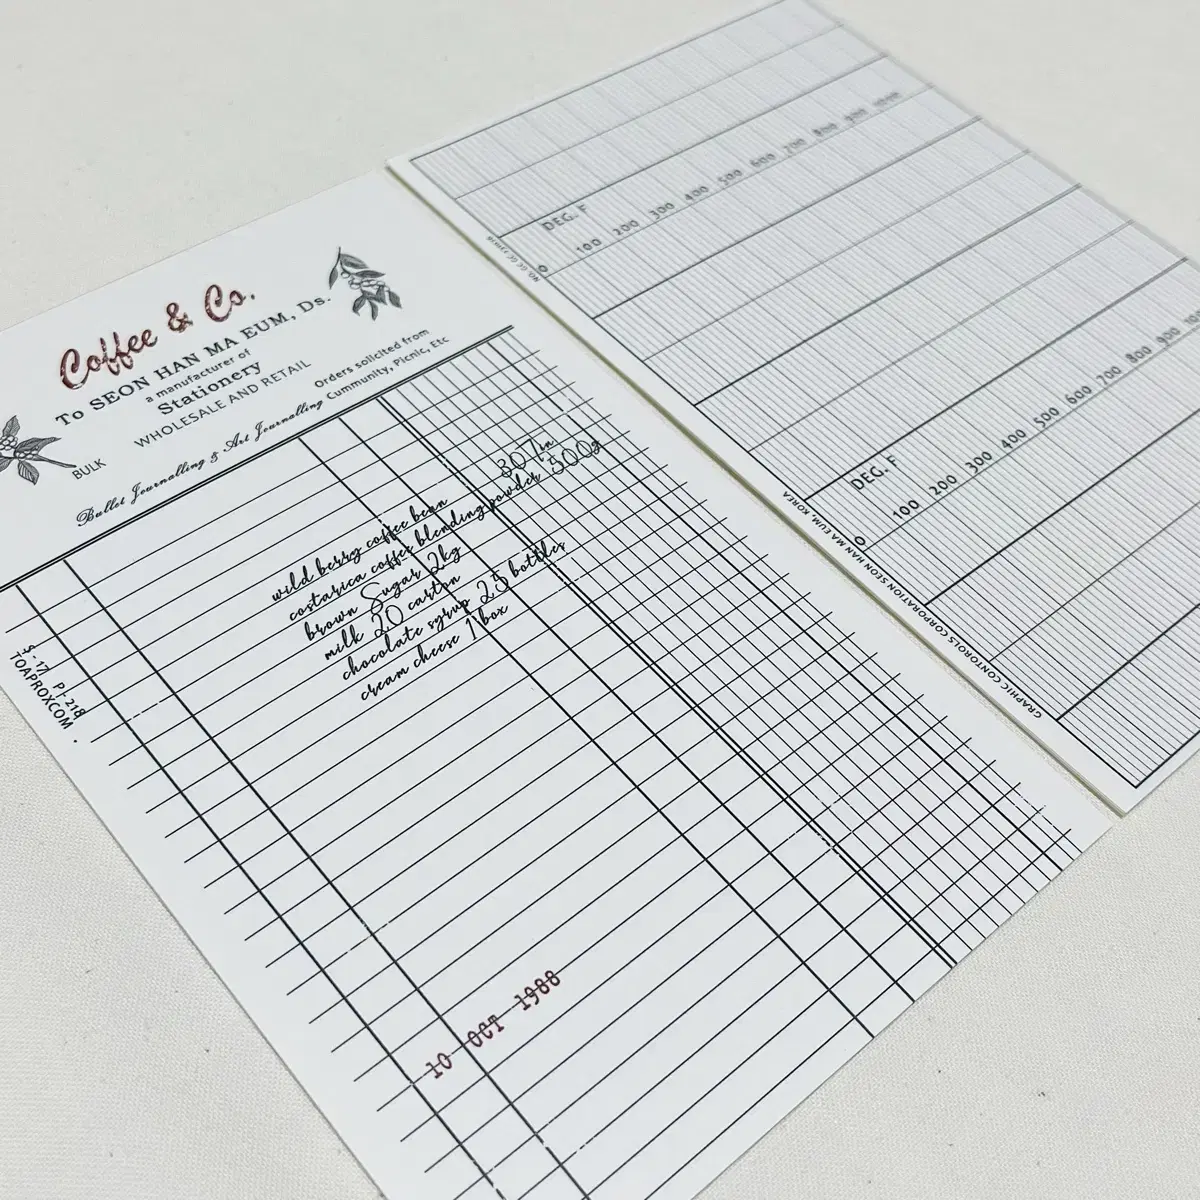 Coffee & Co.
To SEON HAN MA EUM, Ds.
a manufacturer of
Stationery
WHOLESALE AND RETAIL
BULK
Orders solicited from
Cummunity, Picnic, Etc
Bullet Journalling & Art Journalling
wild berry coffee bean
costarica coffee blending powder 500g
brown Sugar 2kg
milk 20 carton
chocolate syrup 25 bottles
cream cheese 1 box
TOAPROXCOM
10 OCT 1988
DEG. F
0 100 200 300 400 500 600 700 800 900 1000
DEG. F
0 100 200 300 400 500 600 700 800 900
GRAPHIC CONTOROLS CORPORATION SEON HAN MA EUM, KOREA